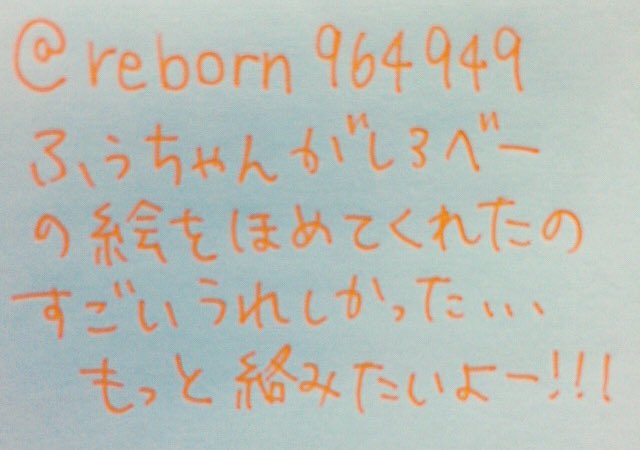 @reborn964949
ふぅちゃんがしろべー
の絵をほめてくれたの
すごいうれしかった、、、
もっと絡みたいよー!!!